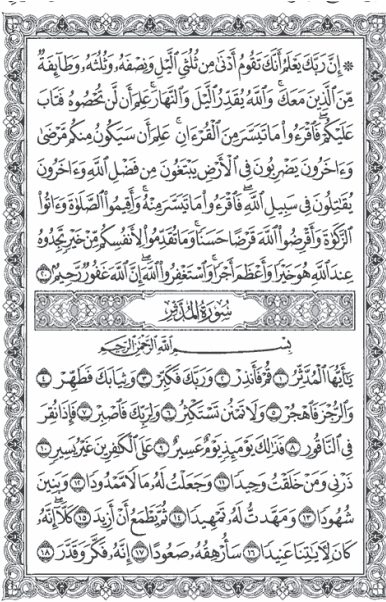 ۞ إِنَّ رَبَّكَ يَعْلَمُ أَنَّكَ تَقُومُ أَدْنَىٰ مِن ثُلُثَيِ ٱلَّيْلِ وَنِصْفَهُۥ وَثُلُثَهُۥ وَطَآئِفَةٌ
مِّنَ ٱلَّذِينَ مَعَكَ ۚ وَٱللَّهُ يُقَدِّرُ ٱلَّيْلَ وَٱلنَّهَارَ ۚ عَلِمَ أَن لَّن تُحْصُوهُ فَتَابَ
عَلَيْكُمْ ۖ فَٱقْرَءُوا۟ مَا تَيَسَّرَ مِنَ ٱلْقُرْءَانِ ۚ عَلِمَ أَن سَيَكُونُ مِنكُم مَّرْضَىٰ
وَءَاخَرُونَ يَضْرِبُونَ فِى ٱلْأَرْضِ يَبْتَغُونَ مِن فَضْلِ ٱللَّهِ ۙ وَءَاخَرُونَ
يُقَٰتِلُونَ فِى سَبِيلِ ٱللَّهِ ۖ فَٱقْرَءُوا۟ مَا تَيَسَّرَ مِنْهُ ۚ وَأَقِيمُوا۟ ٱلصَّلَوٰةَ وَءَاتُوا۟
ٱلزَّكَوٰةَ وَأَقْرِضُوا۟ ٱللَّهَ قَرْضًا حَسَنًا ۚ وَمَا تُقَدِّمُوا۟ لِأَنفُسِكُم مِّنْ خَيْرٍ تَجِدُوهُ
عِندَ ٱللَّهِ هُوَ خَيْرًا وَأَعْظَمَ أَجْرًا ۚ وَٱسْتَغْفِرُوا۟ ٱللَّهَ ۖ إِنَّ ٱللَّهَ غَفُورٌ رَّحِيمٌۢ ٢٠
سُورَةُ المُدَّثِّر
بِسْمِ ٱللَّهِ ٱلرَّحْمَٰنِ ٱلرَّحِيمِ
يَٰٓأَيُّهَا ٱلْمُدَّثِّرُ ١ قُمْ فَأَنذِرْ ٢ وَرَبَّكَ فَكَبِّرْ ٣ وَثِيَابَكَ فَطَهِّرْ ٤
وَٱلرُّجْزَ فَٱهْجُرْ ٥ وَلَا تَمْنُن تَسْتَكْثِرُ ٦ وَلِرَبِّكَ فَٱصْبِرْ ٧ فَإِذَا نُقِرَ
فِى ٱلنَّاقُورِ ٨ فَذَٰلِكَ يَوْمَئِذٍ يَوْمٌ عَسِيرٌ ٩ عَلَى ٱلْكَٰفِرِينَ غَيْرُ يَسِيرٍ ١٠
ذَرْنِى وَمَنْ خَلَقْتُ وَحِيدًا ١١ وَجَعَلْتُ لَهُۥ مَالًا مَّمْدُودًا ١٢ وَبَنِينَ
شُهُودًا ١٣ وَمَهَّدتُّ لَهُۥ تَمْهِيدًا ١٤ ثُمَّ يَطْمَعُ أَنْ أَزِيدَ ١٥ كَلَّآ ۖ إِنَّهُۥ
كَانَ لِءَايَٰتِنَا عَنِيدًا ١٦ سَأُرْهِقُهُۥ صَعُودًا ١٧ إِنَّهُۥ فَكَّرَ وَقَدَّرَ ١٨